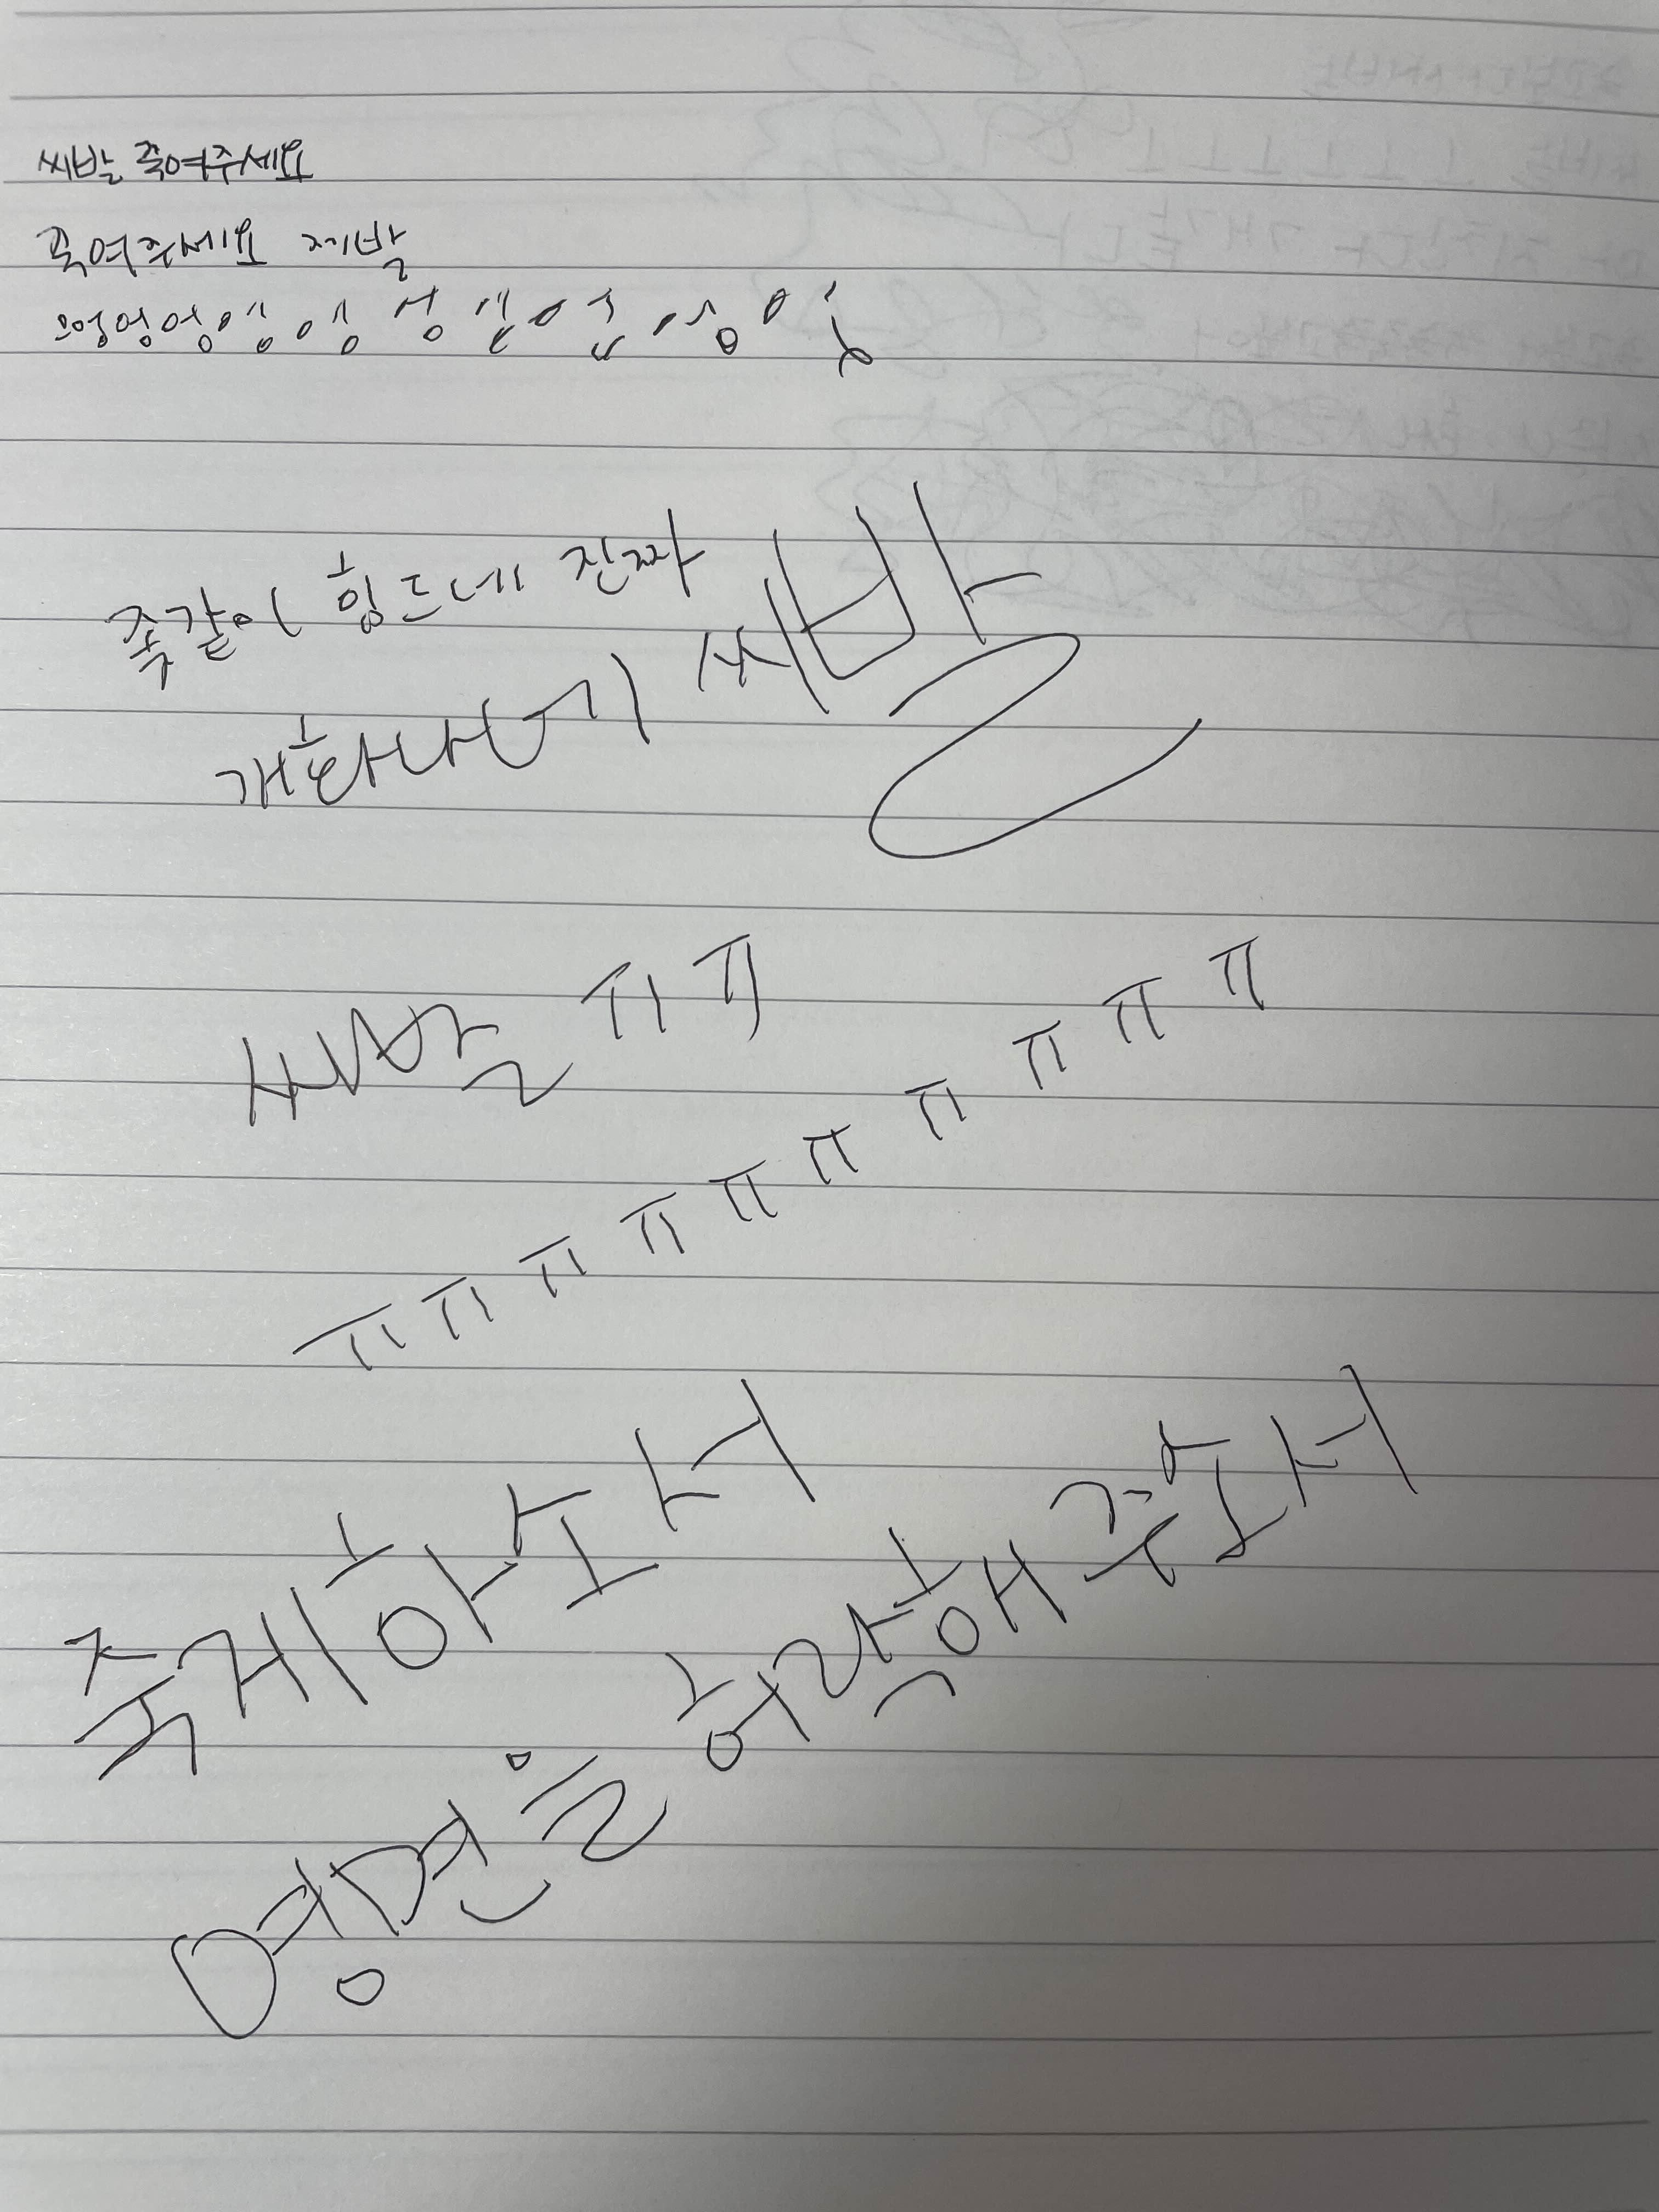 씨발 죽여주세요
죽여주세요 제발
좆같이 힘드네 진짜
개화나네 씨발
씨발 ㅠㅠ
ㅠㅠㅠㅠㅠㅠㅠㅠㅠㅠ
죽게하소서
영면을 허락해주소서